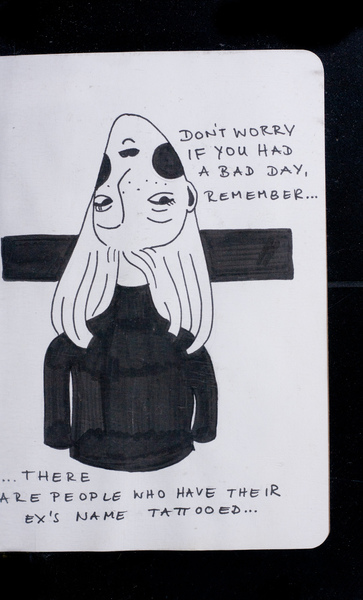 DON'T WORRY
IF YOU HAD
A BAD DAY,
REMEMBER...
...THERE
ARE PEOPLE WHO HAVE THEIR
EX'S NAME TATTOOED...